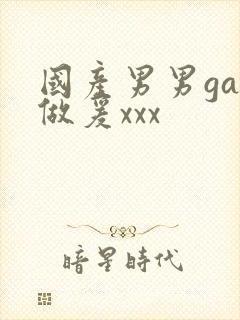 國產男男ga
做爰xxx
暗星時代